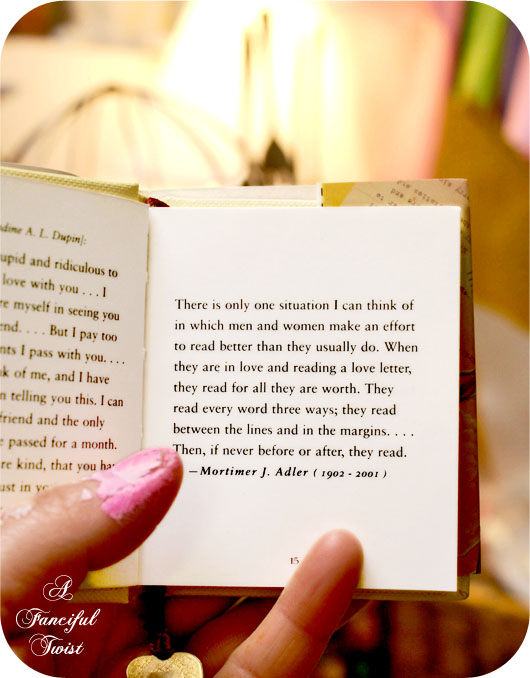 dine A. L. Dupin]:
upid and ridiculous to
love with you . . . I
re myself in seeing you
end. . . . But I pay too
nts I pass with you. . . .
k of me, and I have
n telling you this. I can
friend and the only
e passed for a month.
re kind, that you hav
ust in yo
There is only one situation I can think of
in which men and women make an effort
to read better than they usually do. When
they are in love and reading a love letter,
they read for all they are worth. They
read every word three ways; they read
between the lines and in the margins. . . .
Then, if never before or after, they read.
—Mortimer J. Adler ( 1902 - 2001 )
15
A
Fanciful
Twist